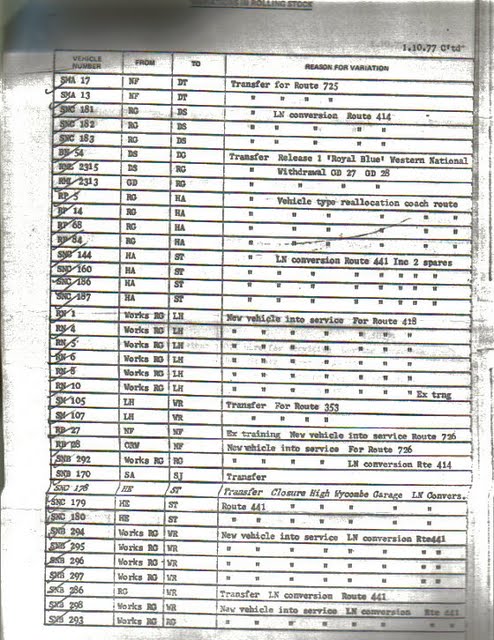 VARIATIONS IN ROLLING STOCK
1.10.77 C'td
VEHICLE NUMBER FROM TO REASON FOR VARIATION
SMA 17 NF DT Transfer for Route 725
SMA 13 NF DT " " " "
SNC 181 RG DS " LN conversion Route 414
SNC 182 RG DS " " " " "
SNC 183 RG DS " " " " "
BN 54 DS DG Transfer Release 1 'Royal Blue' Western National
RML 2315 DS RG " Withdrawal GD 27 GD 28
RML 2313 GD RG " " " "
RP 5 RG HA " Vehicle type reallocation coach route
RP 14 RG HA " " " " " "
RP 68 RG HA " " " " " "
RP 84 RG HA " " " " " "
SNC 144 HA ST " LN conversion Route 441 Inc 2 spares
SNC 160 HA ST " " " " " " " "
SNC 186 HA ST " " " " " " " "
SNC 187 HA ST " " " " " " " "
BN 1 Works RG LH New vehicle into service For Route 418
BN 4 Works RG LH " " " " " " "
BN 5 Works RG LH " " " " " " "
BN 6 Works RG LH " " " " " " "
BN 8 Works RG LH " " " " " " "
BN 10 Works RG LH " " " " " " " Ex trng
SM 105 LH WR Transfer For Route 353
SM 107 LH WR " " " "
RB 27 NF NF Ex training New vehicle into service Route 726
RB 28 NF New vehicle into service For Route 726
SNB 292 Works RG RG " " " " LN conversion Rte 414
SNB 170 SA SJ Transfer
SNC 178 HE ST Transfer Closure High Wycombe Garage LN Convers.
SNC 179 HE ST Route 441 " " " " "
SNC 180 HE ST " " " " " " "
SNB 294 Works RG WR New vehicle into service LN conversion Rte441
SNB 295 Works RG WR " " " " " " "
SNB 296 Works RG WR " " " " " " "
SNB 297 Works RG WR " " " " " " "
SNB 286 RG WR Transfer LN conversion Route 441
SNB 298 Works RG WR New vehicle into service LN conversion Rte 441
SNB 293 Works RG RG " " " " " " " "